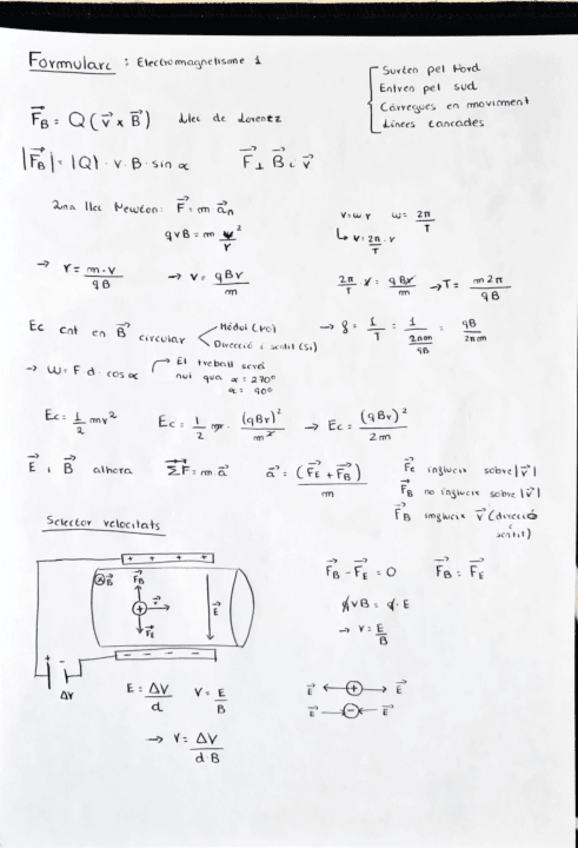 Formulari : Electromagnetisme 1
Surten pel Nord
Entren pel sud
Càrregues en moviment
Línees tancades
F⃗_B = Q(v⃗ x B⃗) Llei de Lorentz
|F⃗_B| = |Q| · v · B · sin α F⃗ ⊥ B⃗ i v⃗
2na llei Newton: F⃗ = m a⃗_n
v = w r w = 2π/T
qvB = m v²/r
↳ v = 2π/T · r
→ r = m·v/qB → v = qBr/m
2π/T · r = qBr/m → T = m2π/qB
Ec cnt en B⃗ circular
Mòdul (No)
Direcció i sentit (Si)
→ f = 1/T = 1/(2πm/qB) = qB/2πm
→ W = F · d · cos α
El treball serà
nul qua α = 270°
α = 90°
Ec = 1/2 mv² Ec = 1/2 m · (qBr)²/m² → Ec = (qBr)²/2m
E⃗ i B⃗ alhora ΣF⃗ = m · a⃗ a⃗ = (F⃗_E + F⃗_B)/m
F⃗e influeix sobre |v⃗|
F⃗_B no influeix sobre |v⃗|
F⃗_B influeix v⃗ (direcció
i
sentit)
Selector velocitats
+ + + +
⊗B⃗ F⃗_B
+ v⃗ E⃗
F⃗_E
- - - -
+ -
ΔV
F⃗_B - F⃗_E = 0 F⃗_B = F⃗_E
qvB = q · E
→ v = E/B
E = ΔV/d v = E/B
→ v = ΔV/d·B
E⃗ ← + → E⃗
E⃗ → - ← E⃗